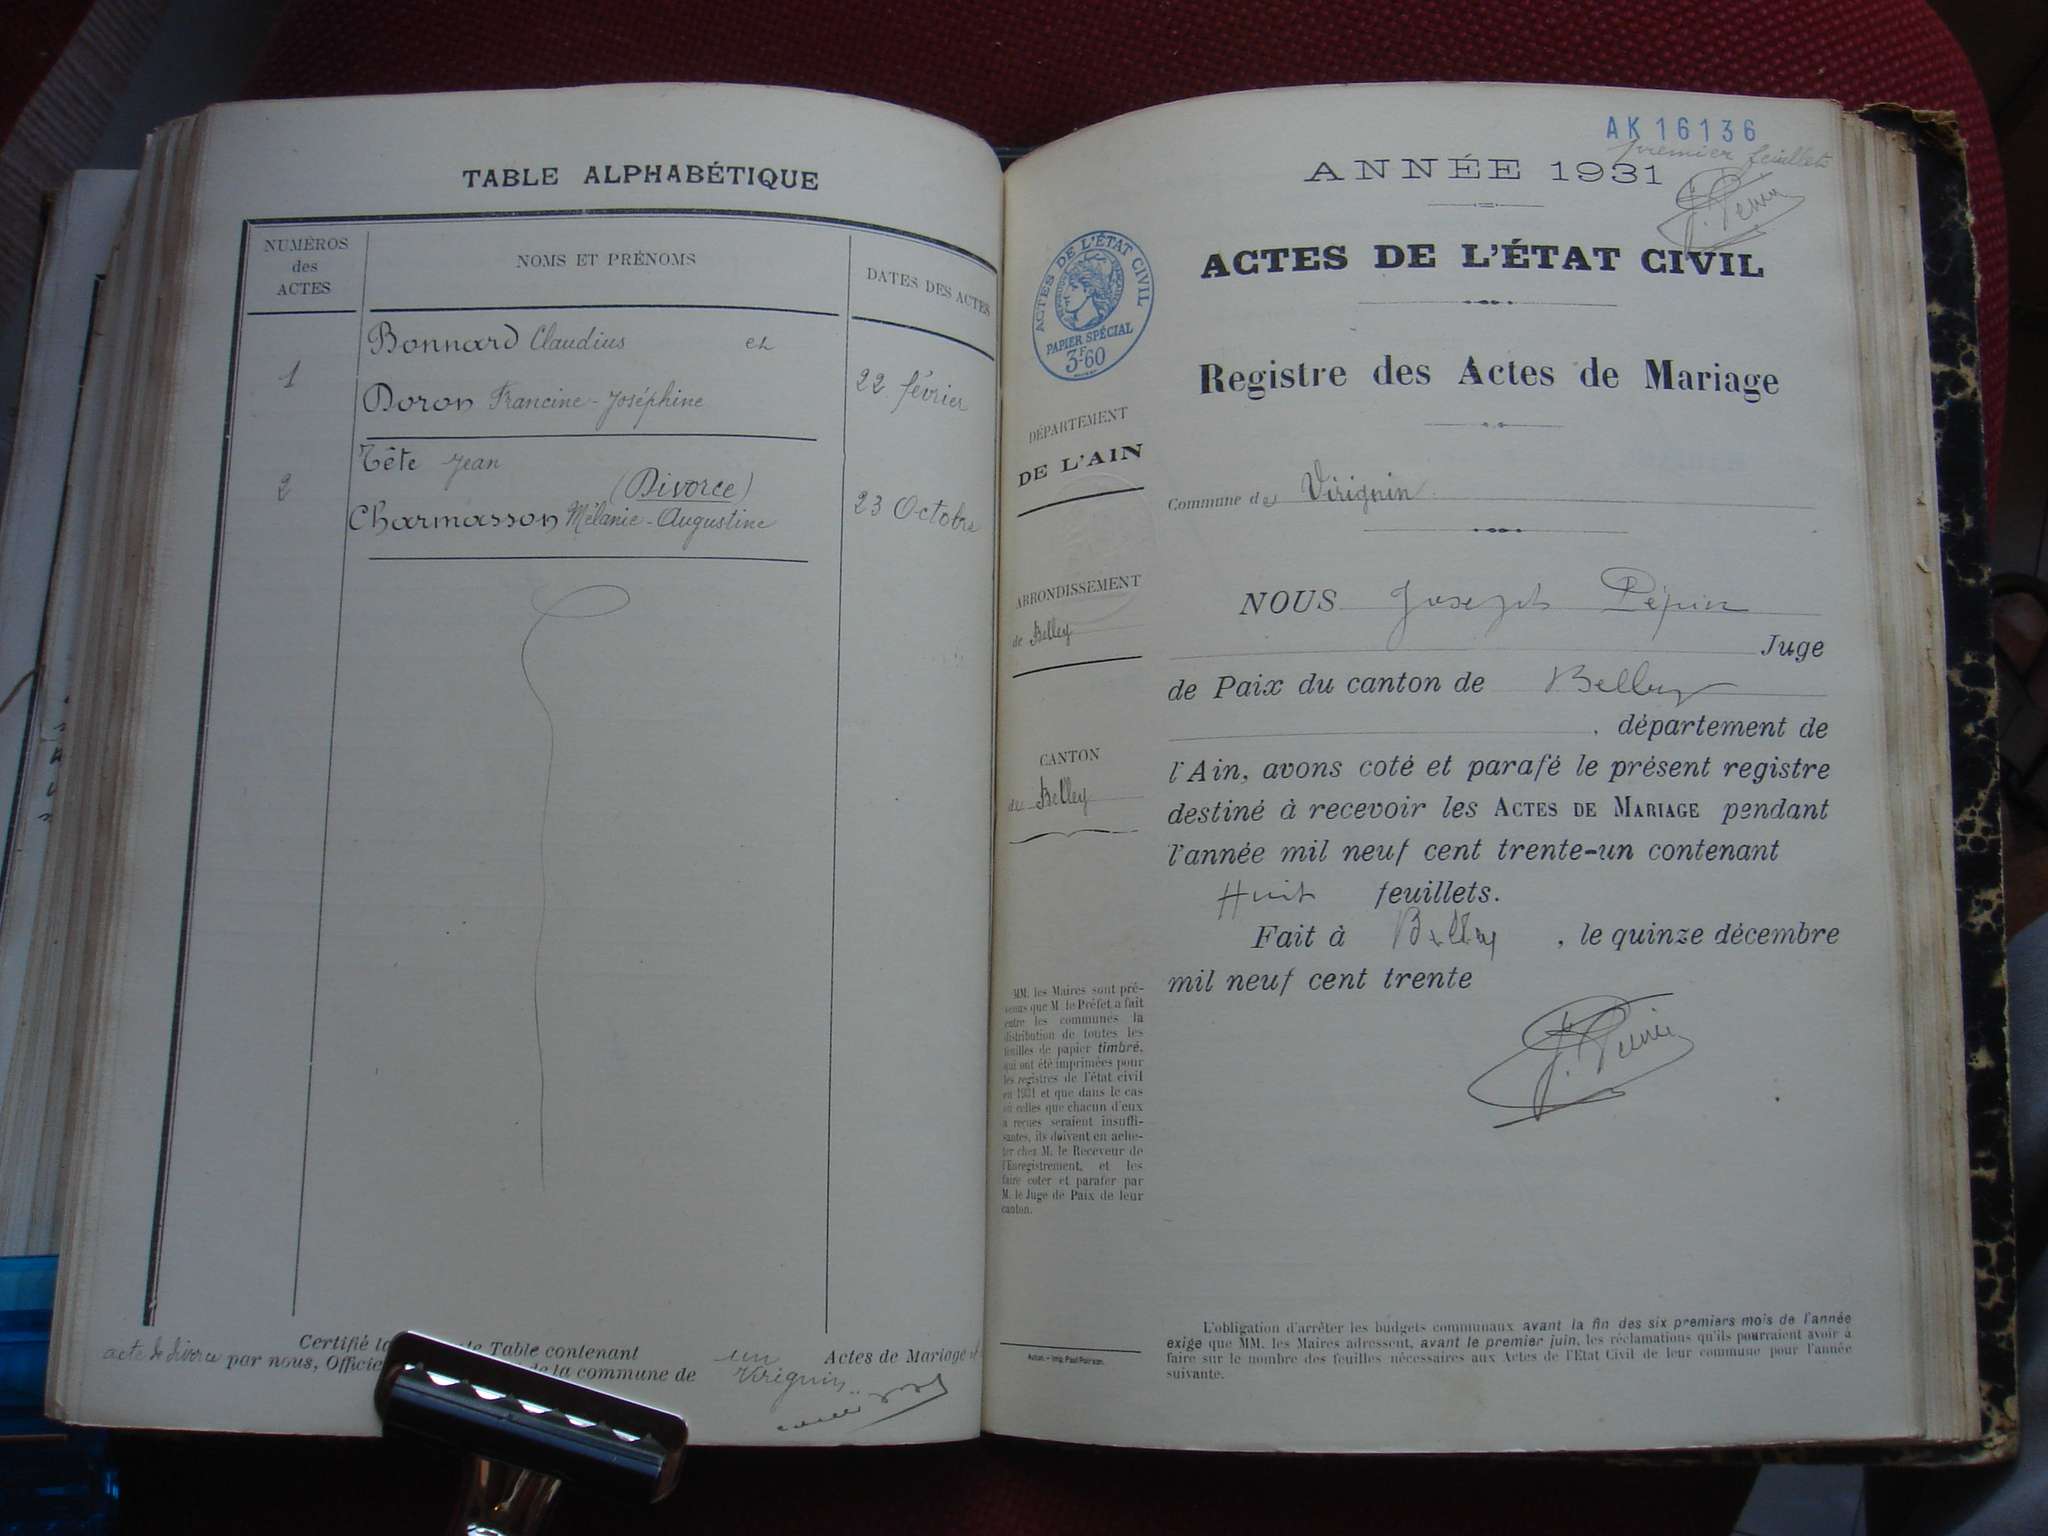 TABLE ALPHABÉTIQUE
NUMÉROS
des
ACTES
NOMS ET PRÉNOMS
DATES DES ACTES
1
Bonnard Claudius et
Doron Francine-Joséphine
22 février
2
Tête Jean
(Divorce)
Charmasson Mélanie-Augustine
23 Octobre
Certifié la Table contenant un Actes de Mariage et
acte de divorce par nous, Officie de la commune de Virignin
AK16136
premier feuillet
J. Pépin
ANNÉE 1931
ACTES DE L'ÉTAT CIVIL
ACTES DE L'ÉTAT CIVIL
PAPIER SPÉCIAL
3F.60
Registre des Actes de Mariage
DÉPARTEMENT
DE L'AIN
Commune de Virignin
ARRONDISSEMENT
de Belley
CANTON
de Belley
NOUS Joseph Pépin
Juge
de Paix du canton de Belley
, département de
l'Ain, avons coté et parafé le présent registre
destiné à recevoir les ACTES DE MARIAGE pendant
l'année mil neuf cent trente-un contenant
Huit feuillets.
Fait à Belley , le quinze décembre
mil neuf cent trente
J. Pépin
MM. les Maires sont pré-
venus que M. le Préfet a fait
entre les communes la
distribution de toutes les
feuilles de papier timbré,
qui ont été imprimées pour
les registres de l'état civil
en 1931 et que dans le cas
où celles que chacun d'eux
a reçues seraient insuffi-
santes, ils doivent en ache-
ter chez M. le Receveur de
l'Enregistrement, et les
faire coter et parafer par
M. le Juge de Paix de leur
canton.
L'obligation d'arrêter les budgets communaux avant la fin des six premiers mois de l'année
exige que MM. les Maires adressent, avant le premier juin, les réclamations qu'ils pourraient avoir à
faire sur le nombre des feuilles nécessaires aux Actes de l'Etat Civil de leur commune pour l'année
suivante.